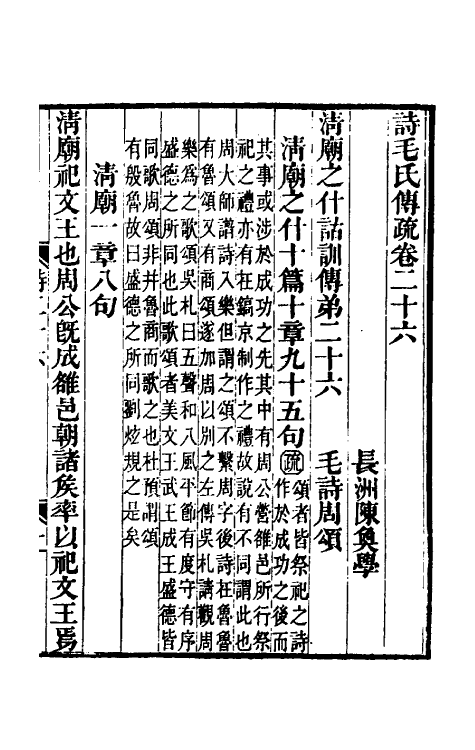 詩毛氏傳疏卷二十六
長洲陳奐學
淸廟之什詁訓傳弟二十六　毛詩周頌
淸廟之什十篇十章九十五句　疏　頌者皆祭祀之詩
作於成功之後而
其事或涉於成功之先其中有周公營雒邑所行祭
祀之禮亦有在鎬京制作之禮故說有不同謂此也
周大師譜詩入樂但謂之頌不繫周字後詩在魯魯
有魯頌又有商頌遂加周以别之左傳吳札請觀周
樂爲之歌頌吳札曰五聲和八風平節有度守有序
盛德之所同也此歌頌者美文王武王成王盛德皆
同歌周頌非幷魯商而歌之也杜預謂頌
有殷魯故曰盛德之所同劉炫規之是矣
淸廟一章八句
淸廟祀文王也周公旣成雒邑朝諸矦率以祀文王焉